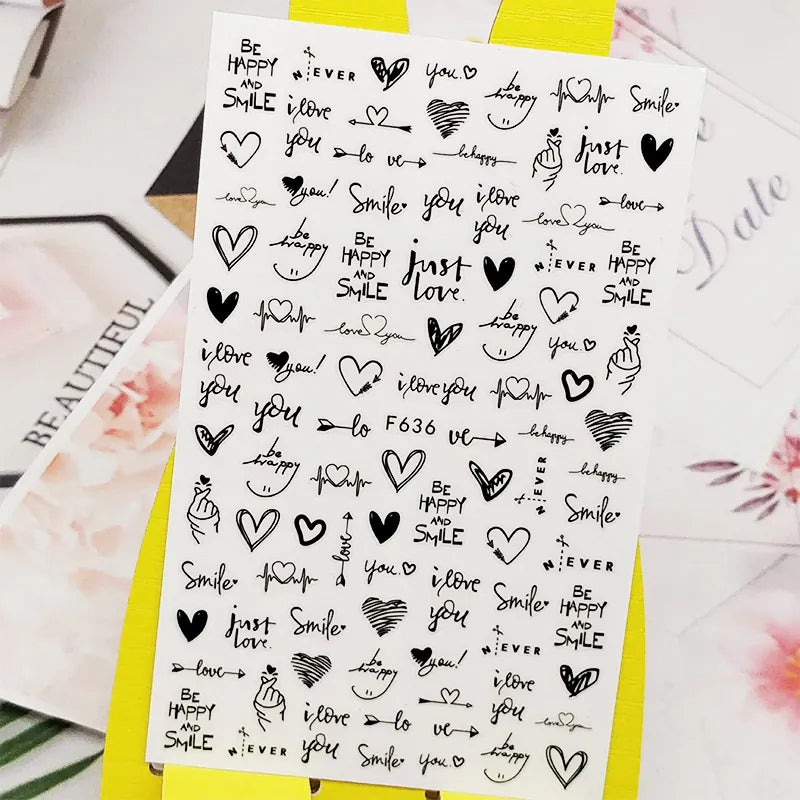 BE
HAPPY
AND
SMILE
N EVER
you.
be
happy
Smile
i love
you
lo ve
be happy
just
love.
love you
you!
Smile
you
i love
you
love you
love
be
happy
BE
HAPPY
AND
SMILE
just
love.
N EVER
BE
HAPPY
AND
SMILE
love you
be
happy
you.
i love
you
you!
i love you
you
lo F636 ve
be happy
be
happy
BE
HAPPY
AND
SMILE
N EVER
be happy
Smile
love
N EVER
Smile
you.
i love
you
Smile
BE
HAPPY
AND
SMILE
just
love.
Smile
N EVER
love
be
happy
you!
i love
you
love you
BE
HAPPY
AND
SMILE
N EVER
i love
you
lo ve
Smile
you.
be
happy
BEAUTIFUL
Date